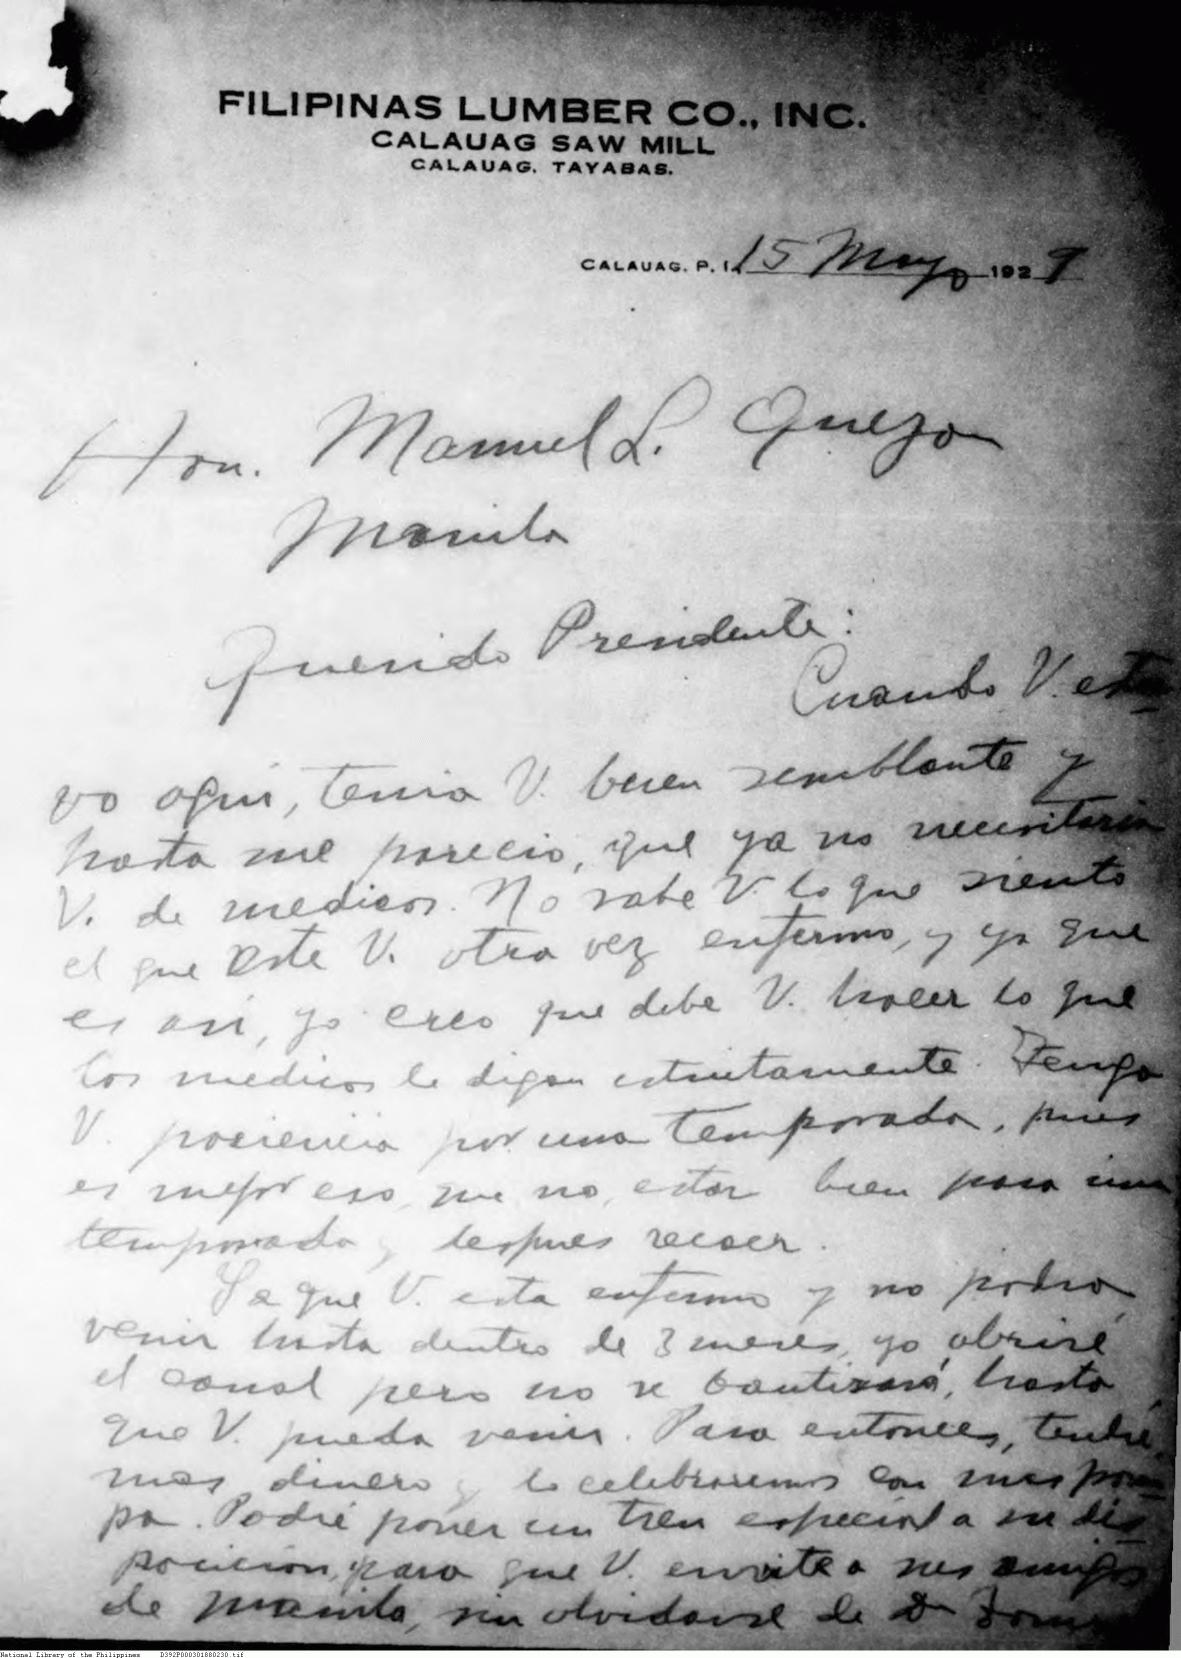 FILIPINAS LUMBER CO., INC.
CALAUAG SAW MILL
CALAUAG, TAYABAS.
CALAUAG, P. I. 15 Mayo 1929
Hon. Manuel L. Quezon
Manila
Querido Presidente:
Cuando V. estu-
vo aqui, tenia V. buen semblante y
hasta me parecio, que ya no necesitaria
V. de medicos. No sabe V. lo que siento
el que este V. otra vez enfermo, y ya que
es asi, yo creo que debe V. hacer lo que
los medicos le digan estrictamente. Tenga
V. paciencia por una temporada, pues
es mejor eso, que no, estar bien para una
temporada y despues recaer.
Ya que V. esta enfermo y no podra
venir hasta dentro de 3 meses, yo abriré
el canal pero no se bautizará, hasta
que V. pueda venir. Para entonces, tendré
mas dinero y lo celebraremos con mas pom-
pa. Podré poner un tren especial a su dis-
posicion, para que V. envite a sus amigos
de Manila, sin olvidarse de
National Library of the Philippines D392P000301880230.tif